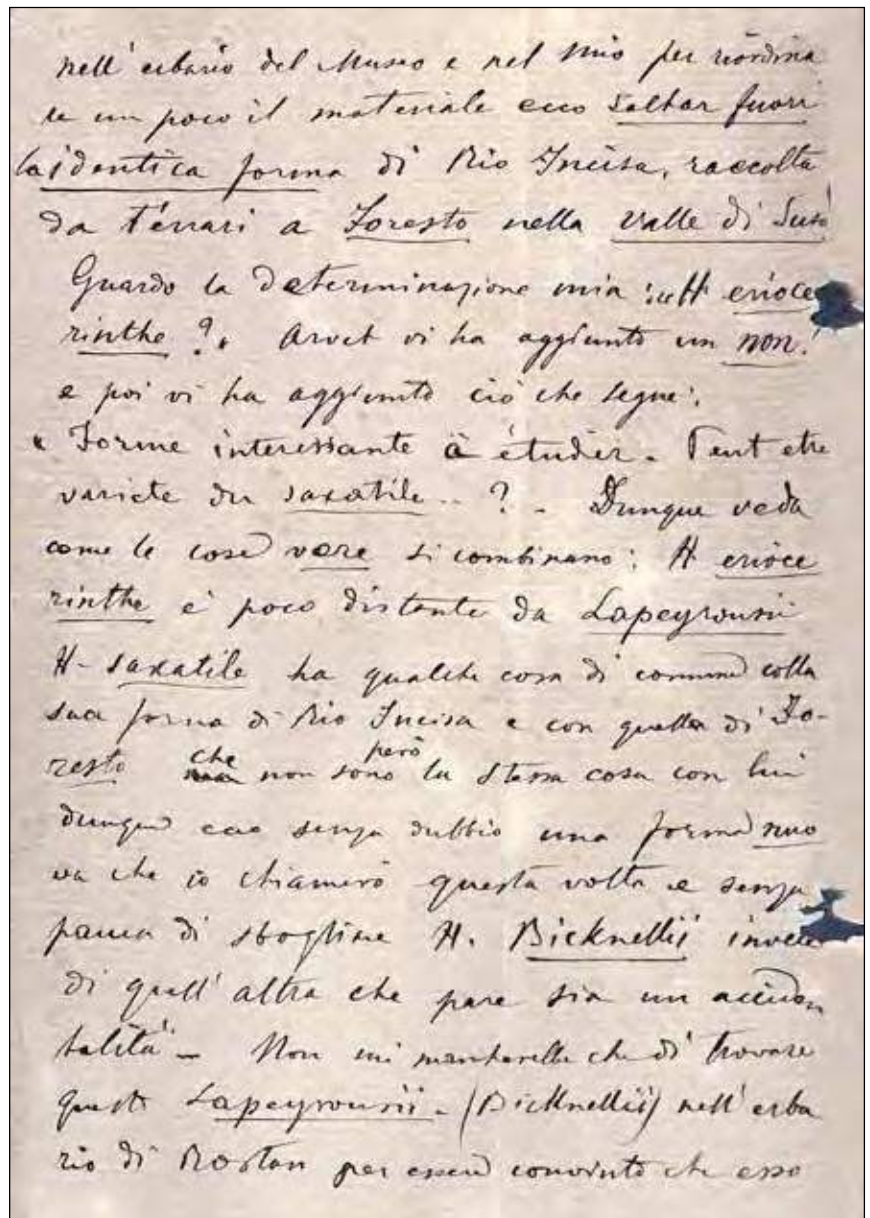 nell' erbario del Museo e nel mio per riordina
re un poco il materiale ecco saltar fuori
la identica forma di Rio Incisa, raccolta
da Ferrari a Foresto nella valle di Susa
Guardo la determinazione mia: "H erioce
rinthe ?" Arvet vi ha aggiunto un non!
e poi vi ha aggiunto ciò che segue:
" Forme interessante à étudier. Peut etre
variete du saxatile .. ? - Dunque veda
come le cose vere si combinano: H erioce
rinthe è poco distante da Lapeyrousii
H. saxatile ha qualche cosa di comune colla
sua forma di Rio Incisa e con quella di Fo-
resto che non sono però la stessa cosa con lui
dunque ecco senza dubbio una forma nuo
va che io chiamerò questa volta e senza
paura di sbagliare H. Bicknellii invece
di quell' altra che pare sia un acciden
talità - Non mi mancherebbe che di trovare
questo Lapeyrousii - (Bicknellii) nell' erba
rio di Rostan per essere convinto che esso